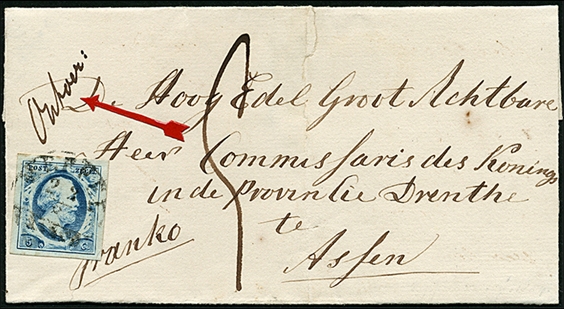 De Hoog Edel Groot Achtbare
Heer Commissaris des Konings
in de Provintie Drenthe
te
Assen
franko
5